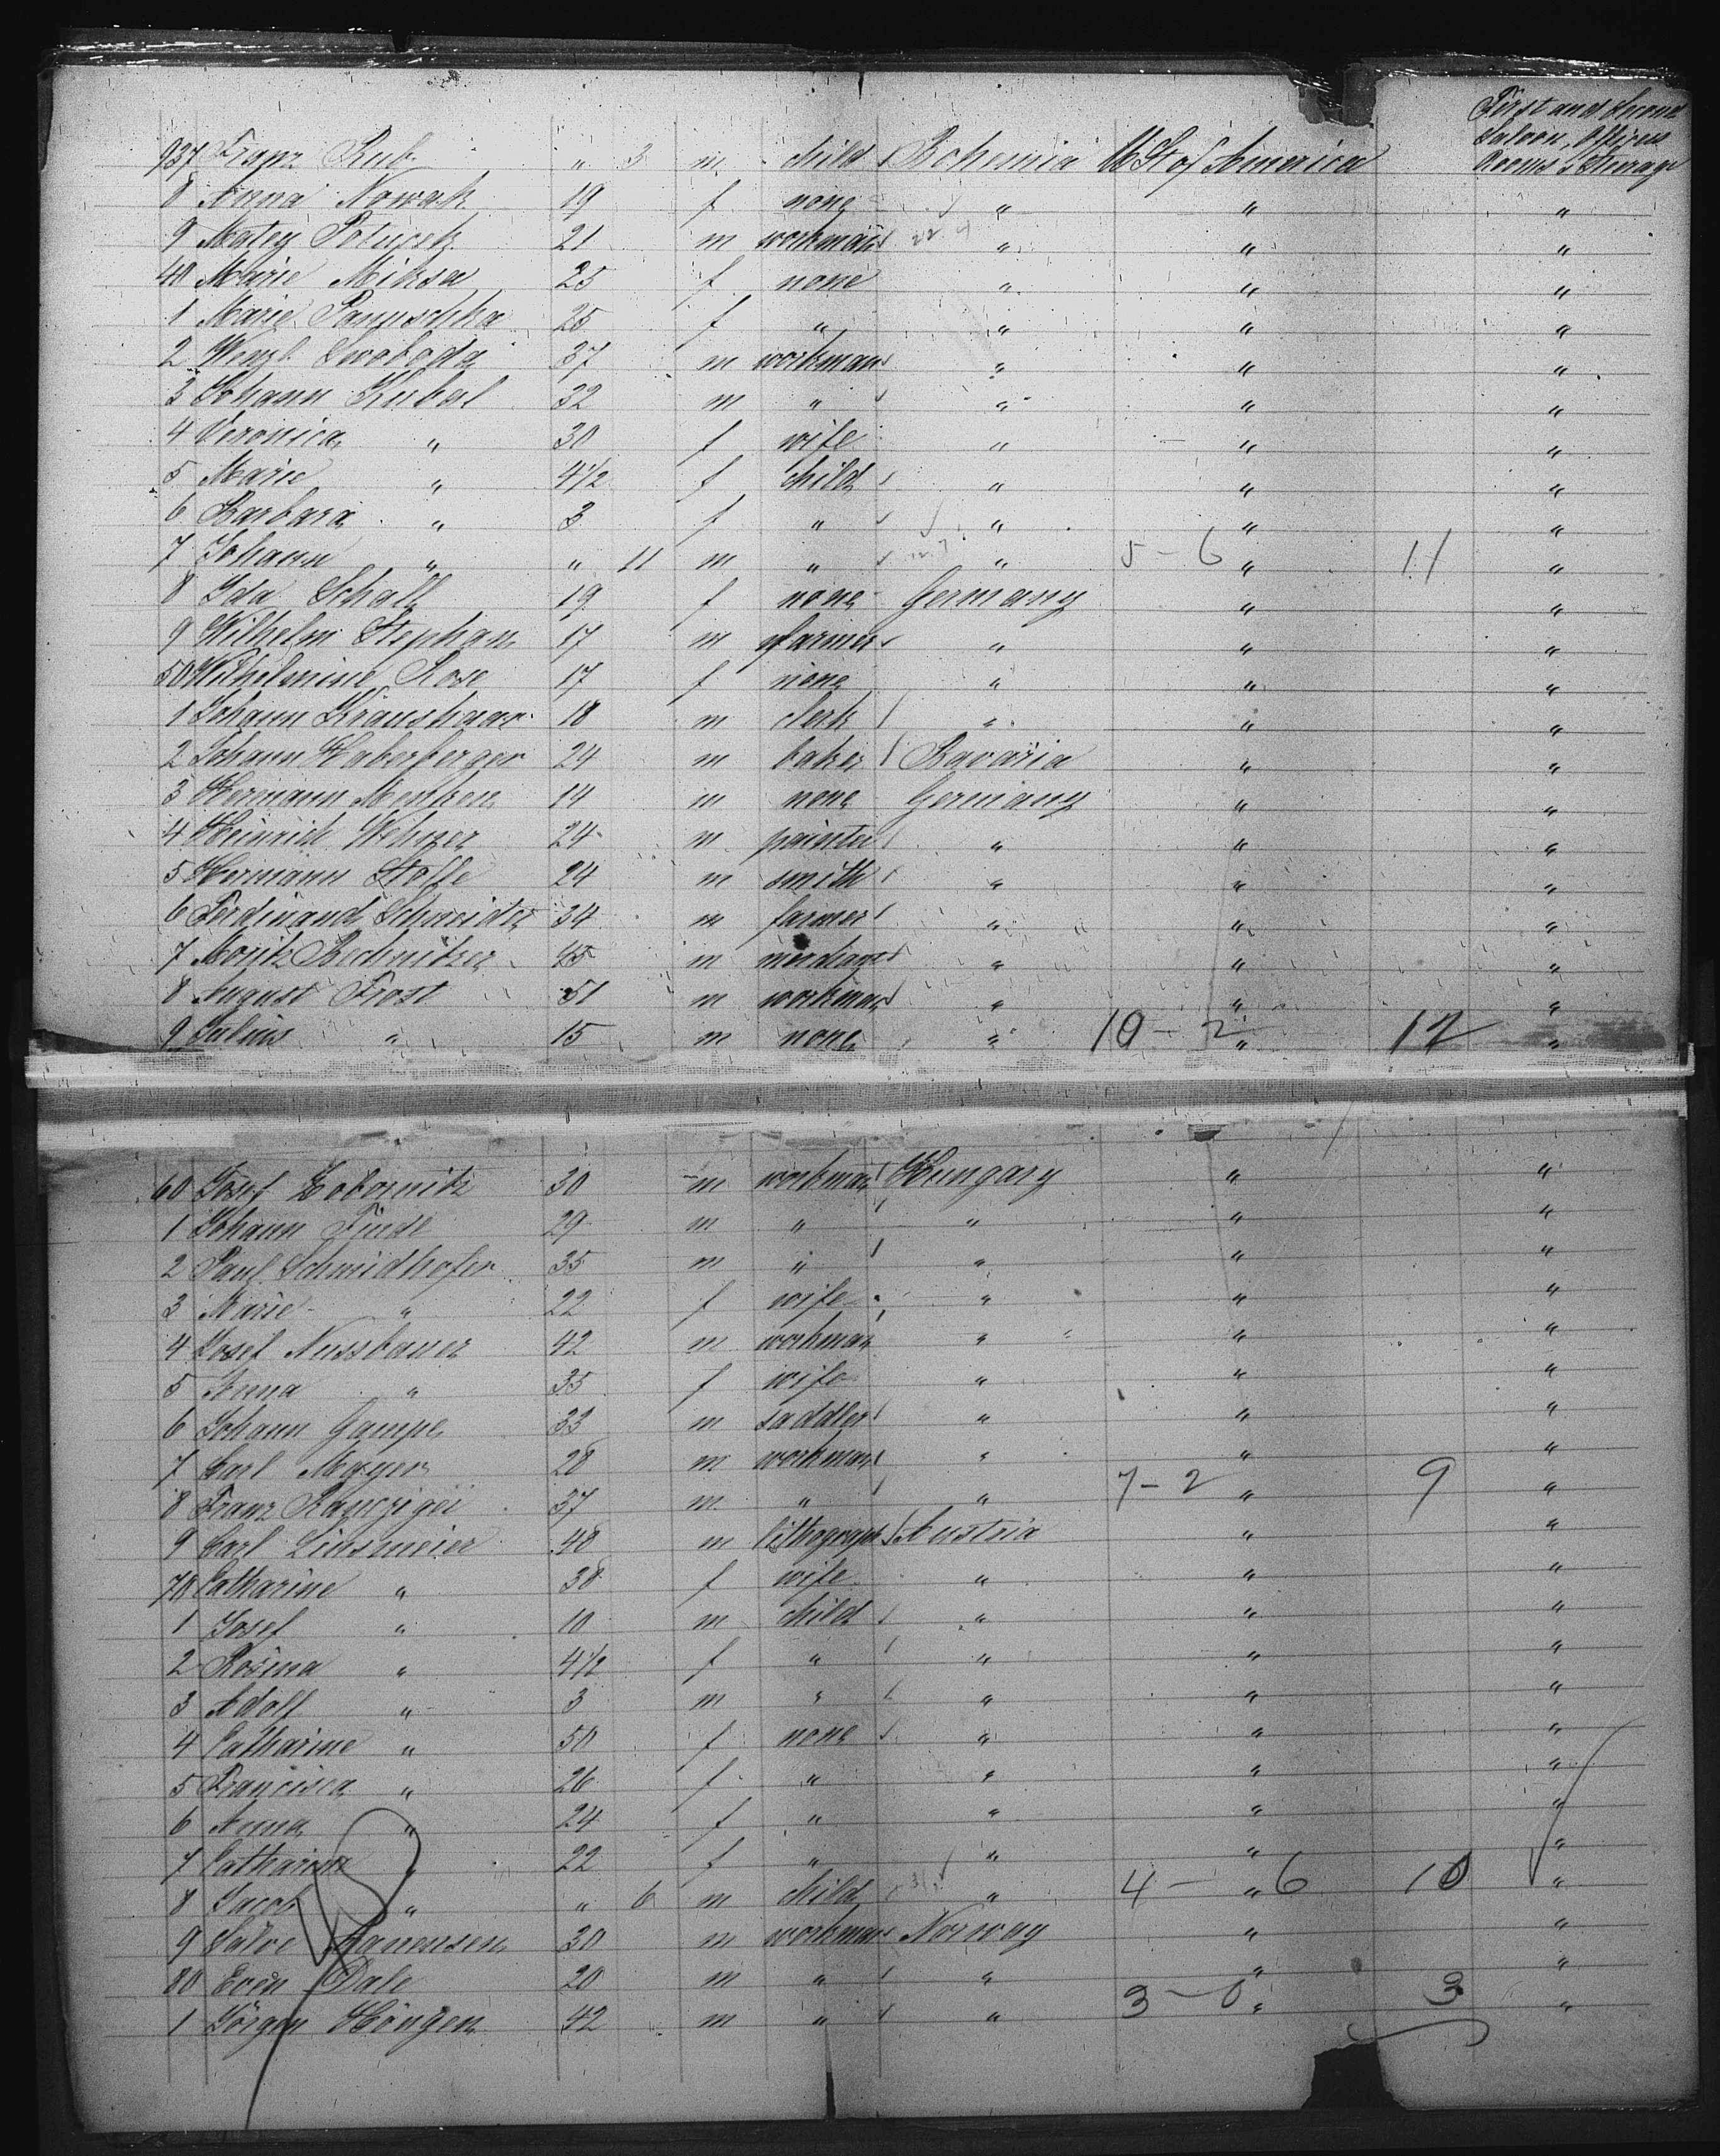 First and Second
Saloon, Officers
Rooms & Steerage
937 Franz Rub " 3 m child Bohemia U St of America
8 Anna Nowak 19 f none " " "
9 Matey 21 m workman " " "
40 Marie Miksa 25 f none " " "
1 Marie 25 f " " " "
2 Wenzl Swoboda 37 m workman " " "
3 Johann Kubal 32 m " " " "
4 Veronica " 30 f wife " " "
5 Marie " 4½ f child " " "
6 Barbara " 3 f " " " "
7 Johann " " 11 m " " 5 - 6 " 11 "
8 Ida Schall 19 f none Germany " "
9 Wilhelm Stephan 17 m farmer " " "
50 Wilhelmine Rose 17 f none " " "
1 Johann Kraushaar 18 m clerk " " "
2 Johann Haberberger 24 m baker Bavaria " "
3 Hermann Menken 14 m none Germany " "
4 Heinrich 24 m painter " " "
5 Hermann Stolle 24 m smith " " "
6 Ferdinand Schneider 34 m farmer " " "
7 Moritz Rechnitzer 45 m merchant " " "
8 August Frost 51 m workman " " "
9 Julius " 15 m none " 10 - 2 " 12 "
60 Josef 30 m workman Hungary " "
1 Johann 29 m " " " "
2 Paul Schmidhofer 35 m " " " "
3 Marie " 22 f wife " " "
4 Josef Nussbauer 42 m workman " " "
5 Anna " 35 f wife " " "
6 Johann Gampe 33 m saddler " " "
7 Carl Mayer 28 m workman " " "
8 Franz 37 m " " 7 - 2 " 9 "
9 Carl Linsmeier 48 m lithograph Austria " "
70 Catharine " 38 f wife " " "
1 Josef " 10 m child " " "
2 Rosina " 4½ f " " " "
3 Adolf " 3 m " " " "
4 Catharine " 50 f none " " "
5 Francisca " 26 f " " " "
6 Anna " 24 f " " " "
7 Catharine " 22 f " " " "
8 Jacob " " 6 m child " 4 - " 6 10 "
9 30 m workman Norway " "
80 Even Dale 20 m " " " "
1 Jörgen 42 m " " 3 - 0 " 3 "